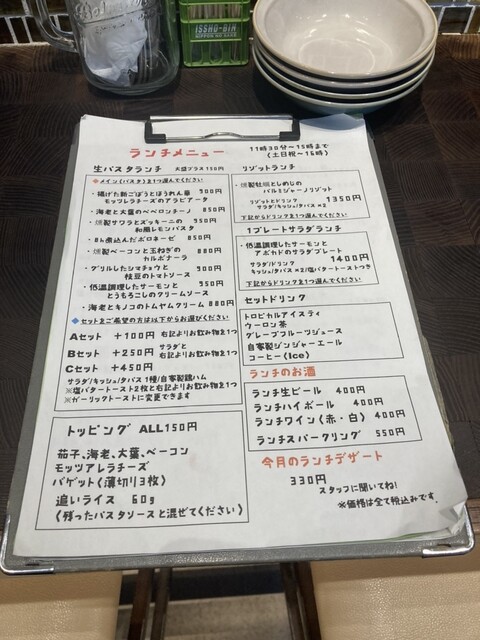 ISSHO-BIN
NIPPON NO SAKE
ランチメニュー
11時30分～15時まで
(土日祝～16時)
生パスタランチ 大盛プラス150円
◆メイン(パスタ)を1つ選んでください
・揚げた新ごぼうとほうれん草 900円
モッツァレラチーズのアラビアータ
・海老と大葉のペペロンチーノ 850円
・燻製サワラとズッキーニの 950円
和風レモンパスタ
・8h煮込んだボロネーゼ 850円
・燻製ベーコンと玉ねぎの 880円
カルボナーラ
・グリルしたシマチョウと 900円
枝豆のトマトソース
・低温調理したサーモンと 950円
とうもろこしのクリームソース
・海老とキノコのトムヤムクリーム 880円
◆セットをご希望の方は以下からお選びください
Aセット +100円 右記よりお飲み物を1つ
Bセット +250円 サラダと
右記よりお飲み物を1つ
Cセット +450円
サラダ/キッシュ/タパス1種/自家製鶏ハム
※塩バタートースト2枚と右記よりお飲み物を1つ
※ガーリックトーストに変更できます
トッピング ALL150円
茄子、海老、大葉、ベーコン
モッツアレラチーズ
バゲット(薄切り3枚)
追いライス 60g
(残ったパスタソースと混ぜてください)
リゾットランチ
・燻製牡蠣としめじの
パルミジャーノリゾット
リゾットとドリンク 1350円
サラダ/キッシュ/タパス×2
下記からドリンクを1つ選んでください
1プレートサラダランチ
・低温調理したサーモンと
アボカドのサラダプレート
サラダ/ドリンク 1400円
キッシュ/タパス×2/塩バタートーストつき
下記からドリンクを1つ選んでください
セットドリンク
トロピカルアイスティ
ウーロン茶
グレープフルーツジュース
自家製ジンジャーエール
コーヒー(Ice)
ランチのお酒
ランチ生ビール 400円
ランチハイボール 400円
ランチワイン(赤・白) 400円
ランチスパークリング 550円
今月のランチデザート
330円
スタッフに聞いてね!
※価格は全て税込みです。